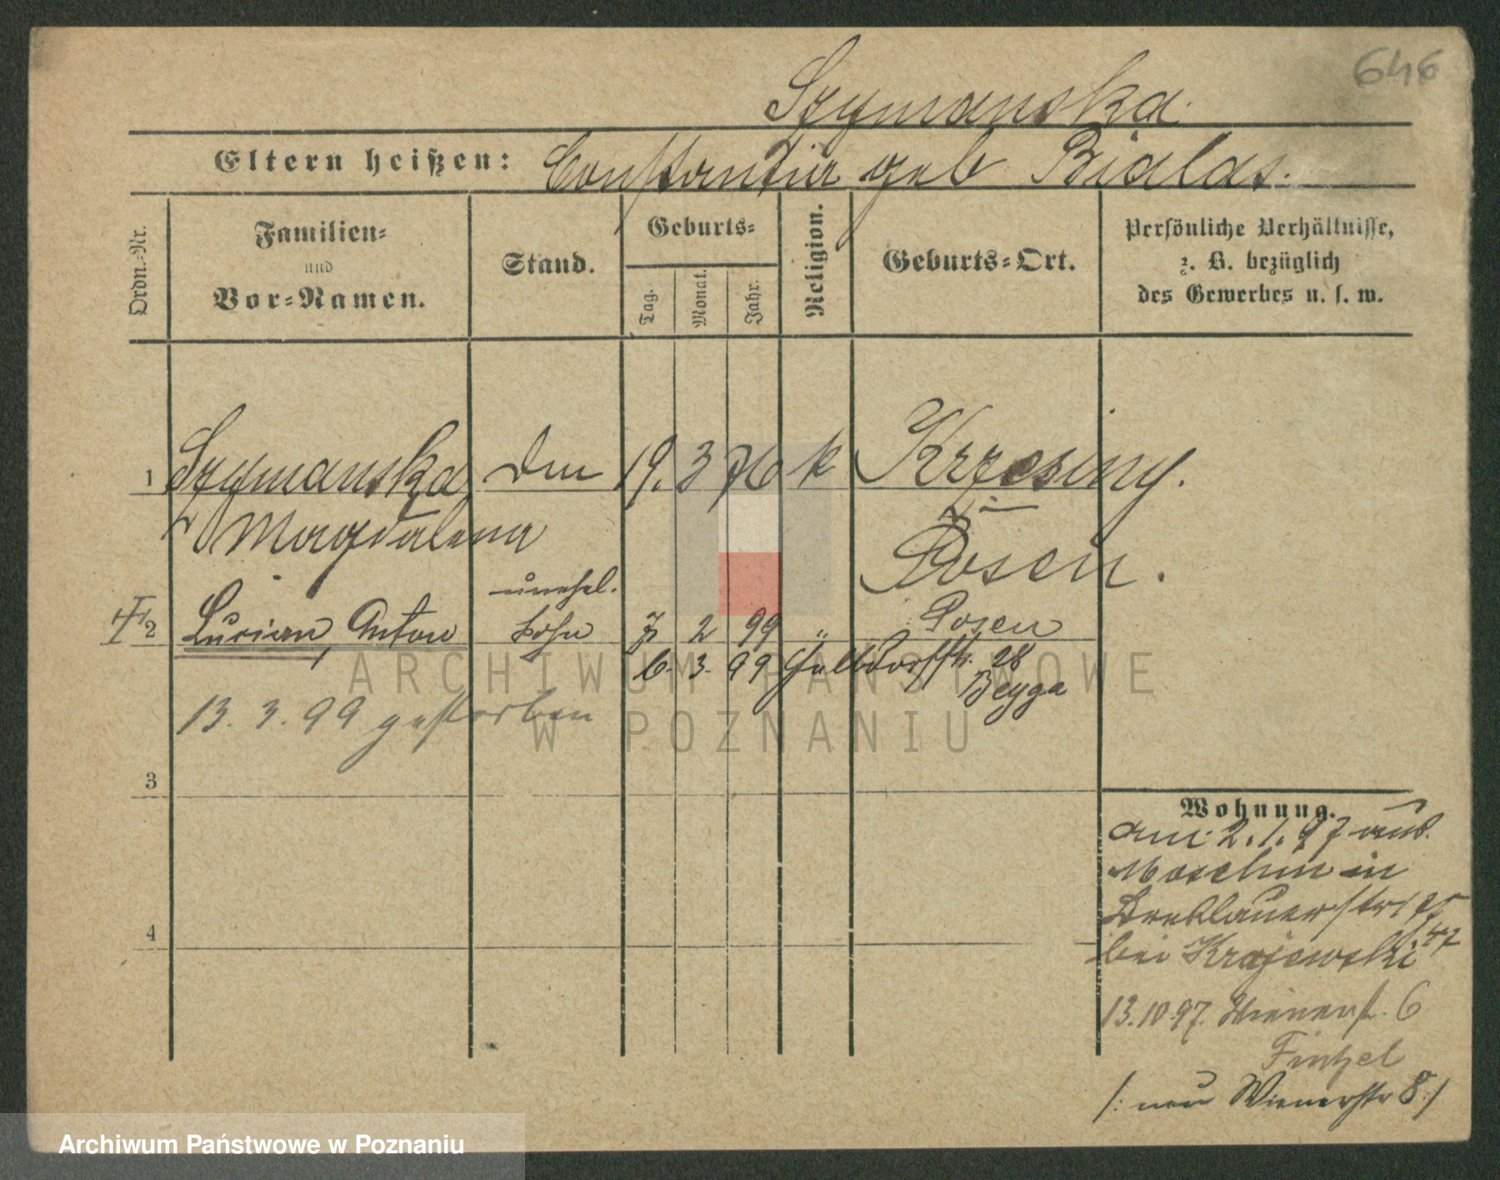 646
Szymanska.
Eltern heißen: Constantia geb Bialas.
Ordn.-Nr.
Familien-
und
Vor-Namen.
Stand.
Geburts-
Tag.
Monat.
Jahr.
Religion.
Geburts-Ort.
Persönliche Verhältnisse,
z. B. bezüglich
des Gewerbes u. s. w.
1 Szymanska 19. 3 76 k Krzesiny.
Magdalena
Posen.
unehel.
2 Lucian, Anton Sohn 7 2 99 " Posen
6. 3. 99 Halbdorfstr. 28
Beyga
13. 3. 99 gestorben
3
Wohnung.
am 2.1.97 aus
Moschin in
Breslauerstr
4
bei Krajewski
13.10.97. Wienerst. 6
Finzel
/: neu Wienerstr 8 :/
ARCHIWUM PAŃSTWOWE
W POZNANIU
Archiwum Państwowe w Poznaniu